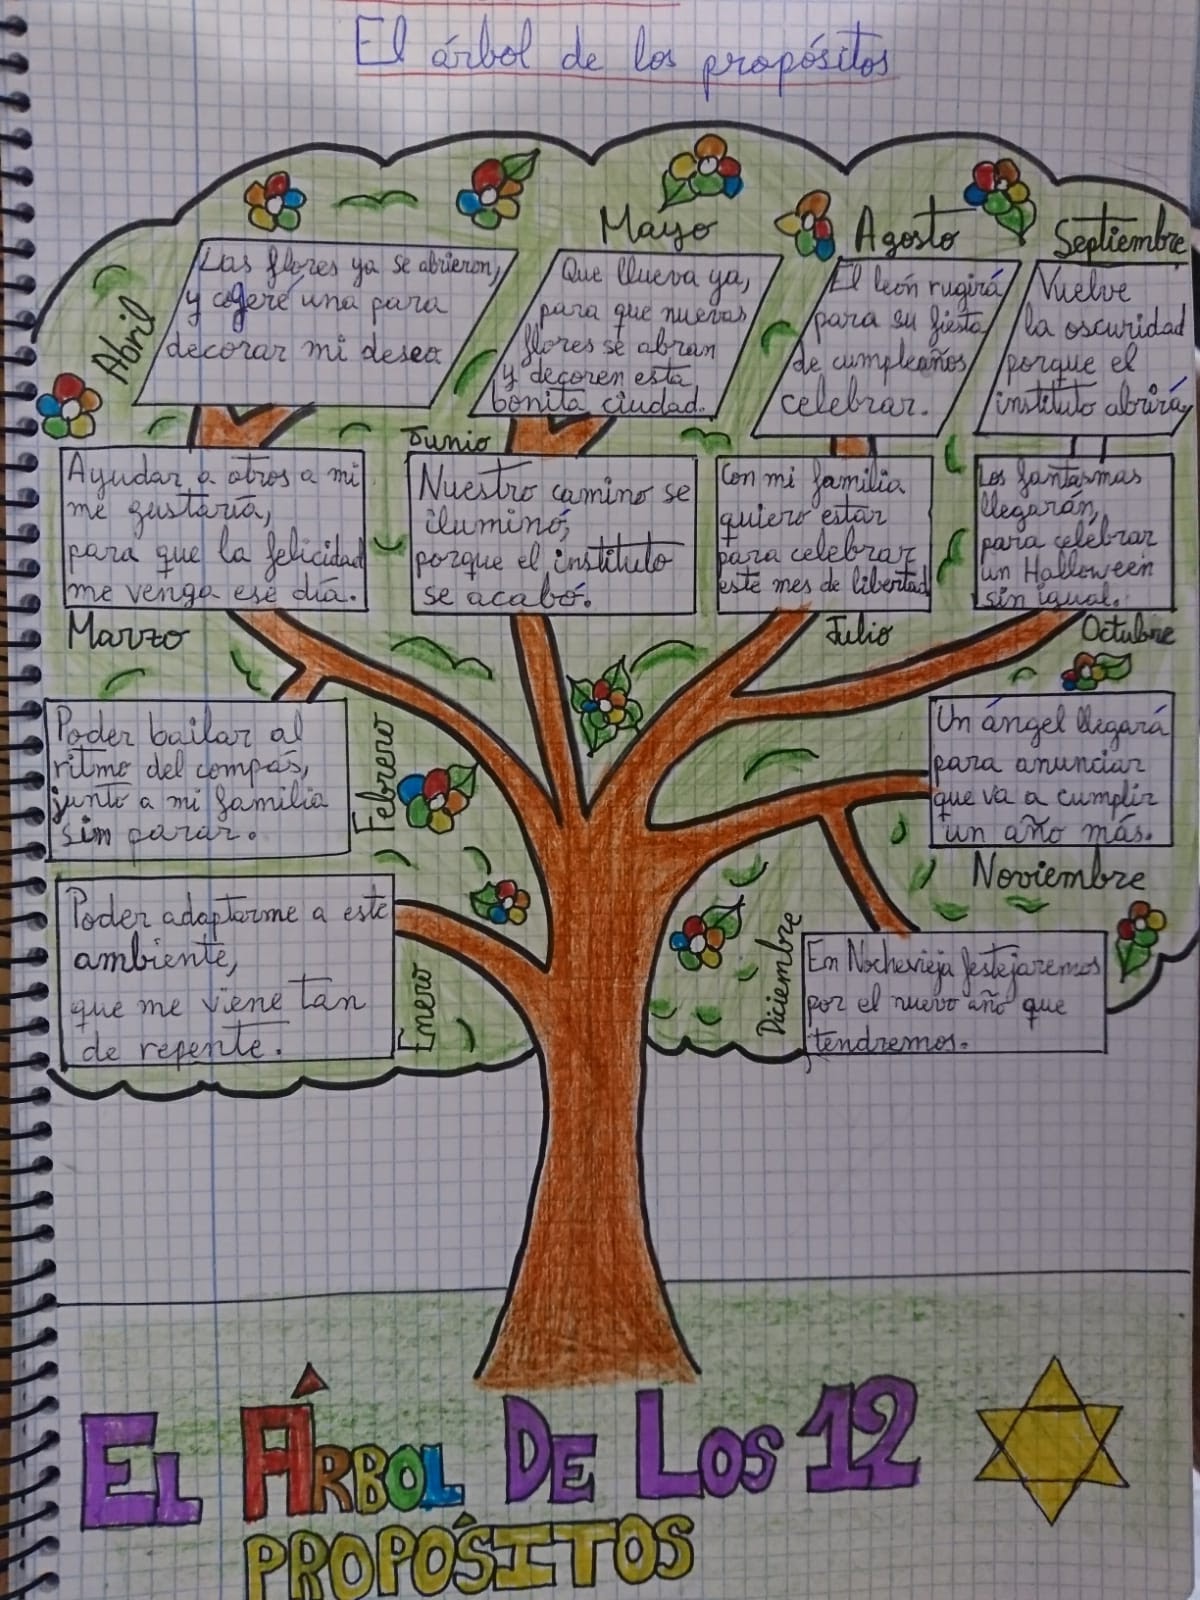 El árbol de los propósitos
Abril
Las flores ya se abrieron,
y cogeré una para
decorar mi deseo
Mayo
Que llueva ya,
para que nuevas
flores se abran
y decoren esta
bonita ciudad.
Agosto
El león rugirá
para su fiesta
de cumpleaños
celebrar.
Septiembre
Vuelve
la oscuridad
porque el
instituto abrirá,
Ayudar a otros a mi
me gustaría,
para que la felicidad
me venga ese día.
Marzo
Junio
Nuestro camino se
iluminó,
porque el instituto
se acabó.
Con mi familia
quiero estar
para celebrar
este mes de libertad
Julio
Los fantasmas
llegarán,
para celebrar
un Halloween
sin igual.
Octubre
Poder bailar al
ritmo del compás,
junto a mi familia
sin parar.
Febrero
Un ángel llegará
para anunciar
que va a cumplir
un año más.
Noviembre
Poder adaptarme a este
ambiente,
que me viene tan
de repente.
Enero
Diciembre
En Nochevieja festejaremos
por el nuevo año que
tendremos.
EL ÁRBOL DE LOS 12
PROPÓSITOS